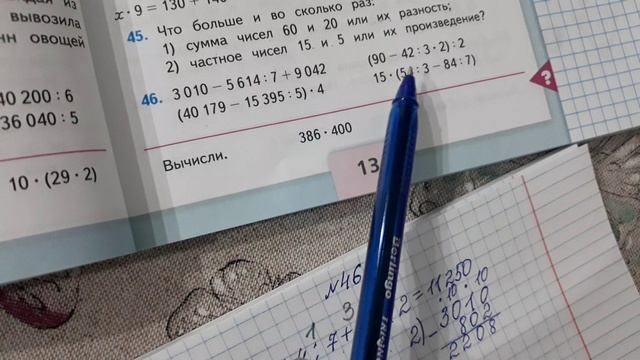 x · 9 = 130 +
вывозила
нн овощей
45. Что больше и во сколько раз:
1) сумма чисел 60 и 20 или их разность;
2) частное чисел 15 и 5 или их произведение?
40 200 : 6
36 040 : 5
46. 3 010 − 5 614 : 7 + 9 042
(90 − 42 : 3 · 2) : 2
(40 179 − 15 395 : 5) · 4
15 · (5 : 3 − 84 : 7)
?
10 · (29 · 2)
Вычисли.
386 · 400
13
Berlingo
№46
1 3 2 = 11250
: 7 +
2) − 3010
802
2208